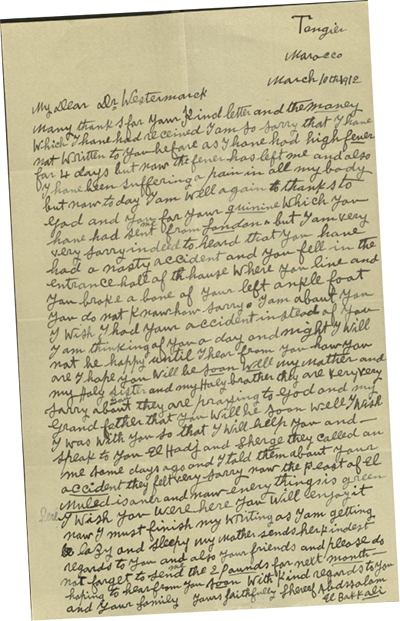 Tangier
Marocco
March 10th 1912
My Dear Dr Westermarck
Many thanks for your kind letter and the money
Which I have had received I am so sorry that I have
not Written to You before as I have had high fever
for 4 days but now the fever has left me and also
I have been suffering a pain in all my body
but now to day I am Well again to thanks to
God and You for Your quinine Which You
have had sent me from London & but I am very
very sorry indeed to heard that You have
had a nasty accident and You fell in the
entrance hall of th house Where You live and
You broke a bone of Your left ankle foot
You do not Know how sorry I am about You
I Wish I had Your accident instead of You
I am thinking of You a day and might I Will
not be happy until I hear from You how You
are I hope You Will be soon Well my Mother and
my Holy sister and my Holy brother they are very very
sorry about they are praying to God and my
Grand father that You Will be soon Well I Wish
I was With You so that I Will help You and
speak to You El Hadj and Sherge they called on
me some days ago and I told them about Your
accident they felt very sorry now the Feast of El
Muled is and now every things is green
I Wish You Were here You Will enjoy it
now I must finish my Writing as I am getting
lazy and sleepy my Mother sends her kindest
regards to You and also Your friends and please do
not forget to send me the 2 pounds for next month
hoping to hear from You soon With kind regards to You
and Your family Yours faithfully Shereef Abdssalam
El Bakkali